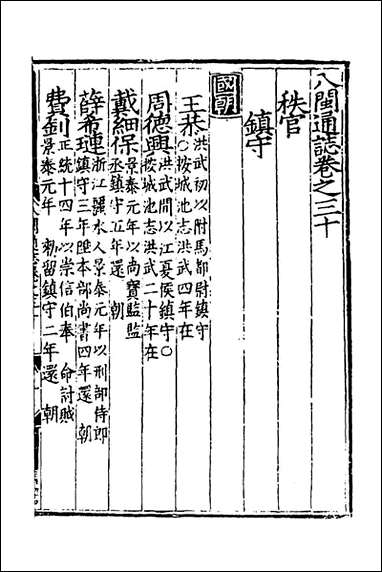 八閩通誌卷之三十
秩官
鎮守
國朝
王恭 洪武初以附馬都尉鎮守
〇按城池志洪武四年在
周德興 洪武間以江夏侯鎮守〇
按城池志洪武二十年在
戴細保 景泰元年以尚寶監監
丞鎮守五年還 朝
薛希璉 浙江麗水人景泰元年以刑部侍郎
鎮守三年陞本部尚書四年還 朝
費釗 正統十四年以崇信伯奉 命討賊
景泰元年 勑留鎮守二年還 朝